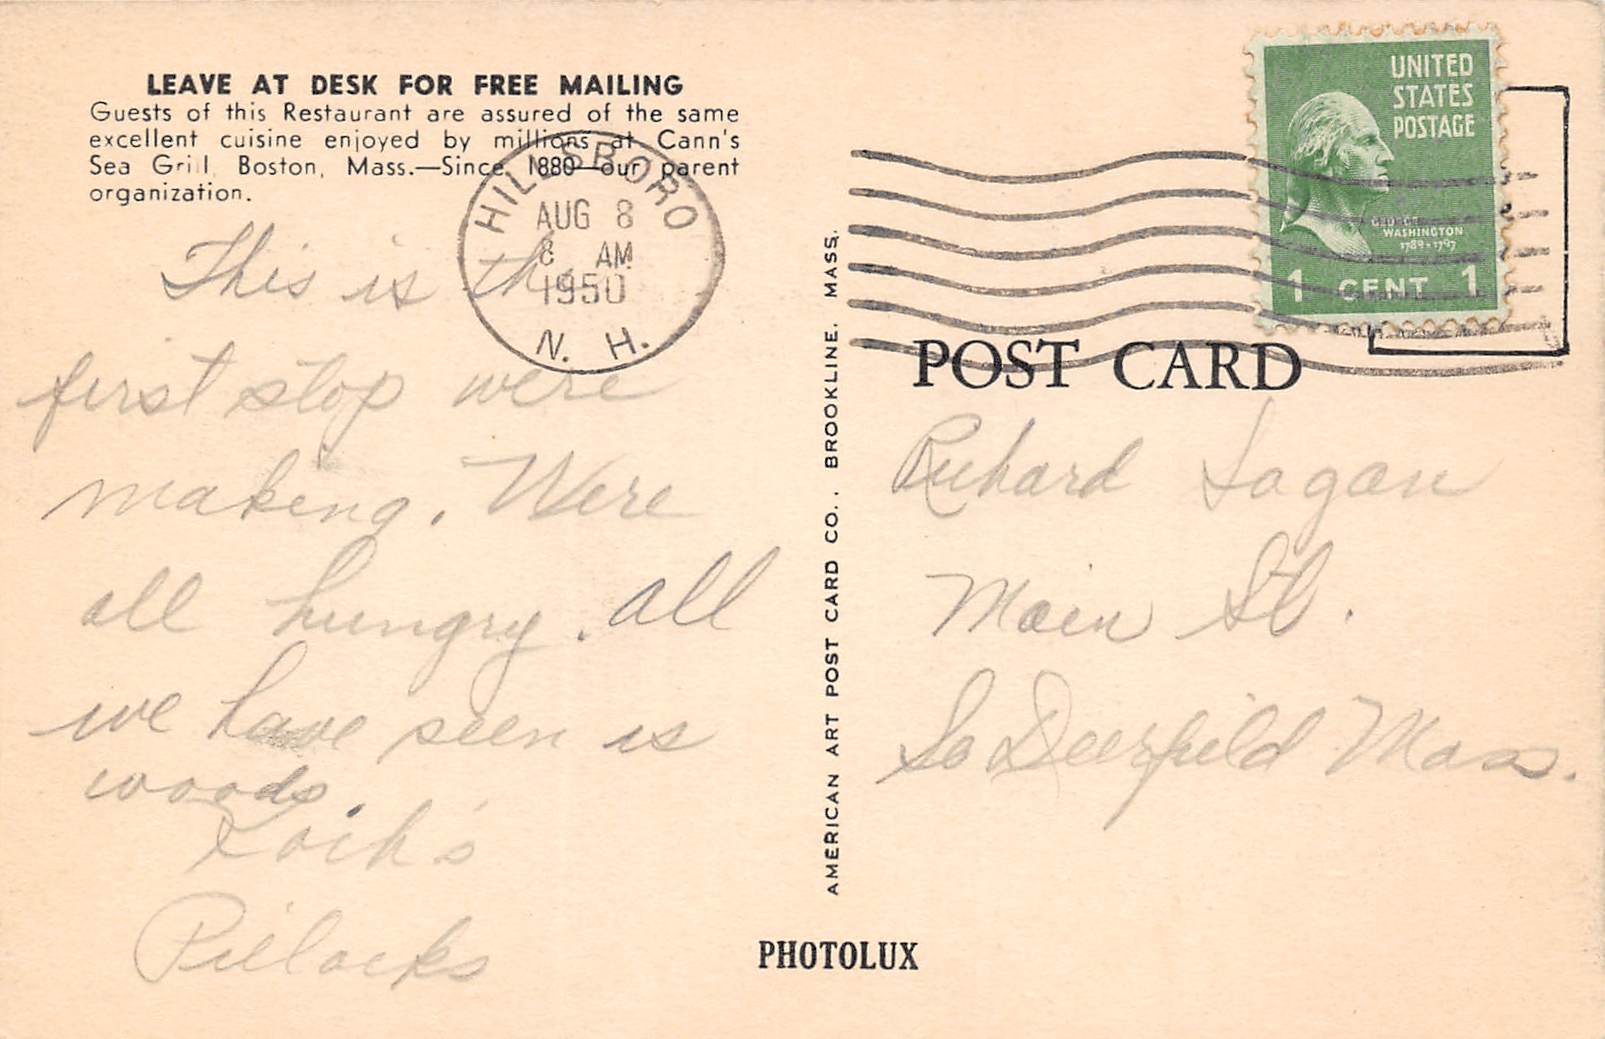 LEAVE AT DESK FOR FREE MAILING
Guests of this Restaurant are assured of the same
excellent cuisine enjoyed by millions at Cann's
Sea Grill, Boston, Mass.—Since 1880—our parent
organization.
HILLSBORO
AUG 8
8 AM
1950
N. H.
UNITED
STATES
POSTAGE
GEORGE
WASHINGTON
1789-1797
1 CENT 1
This is the
first stop were
making. Were
all hungry. All
we have seen is
woods.
POST CARD
Richard
Main St.
So Deerfield Mass.
AMERICAN ART POST CARD CO., BROOKLINE, MASS.
PHOTOLUX